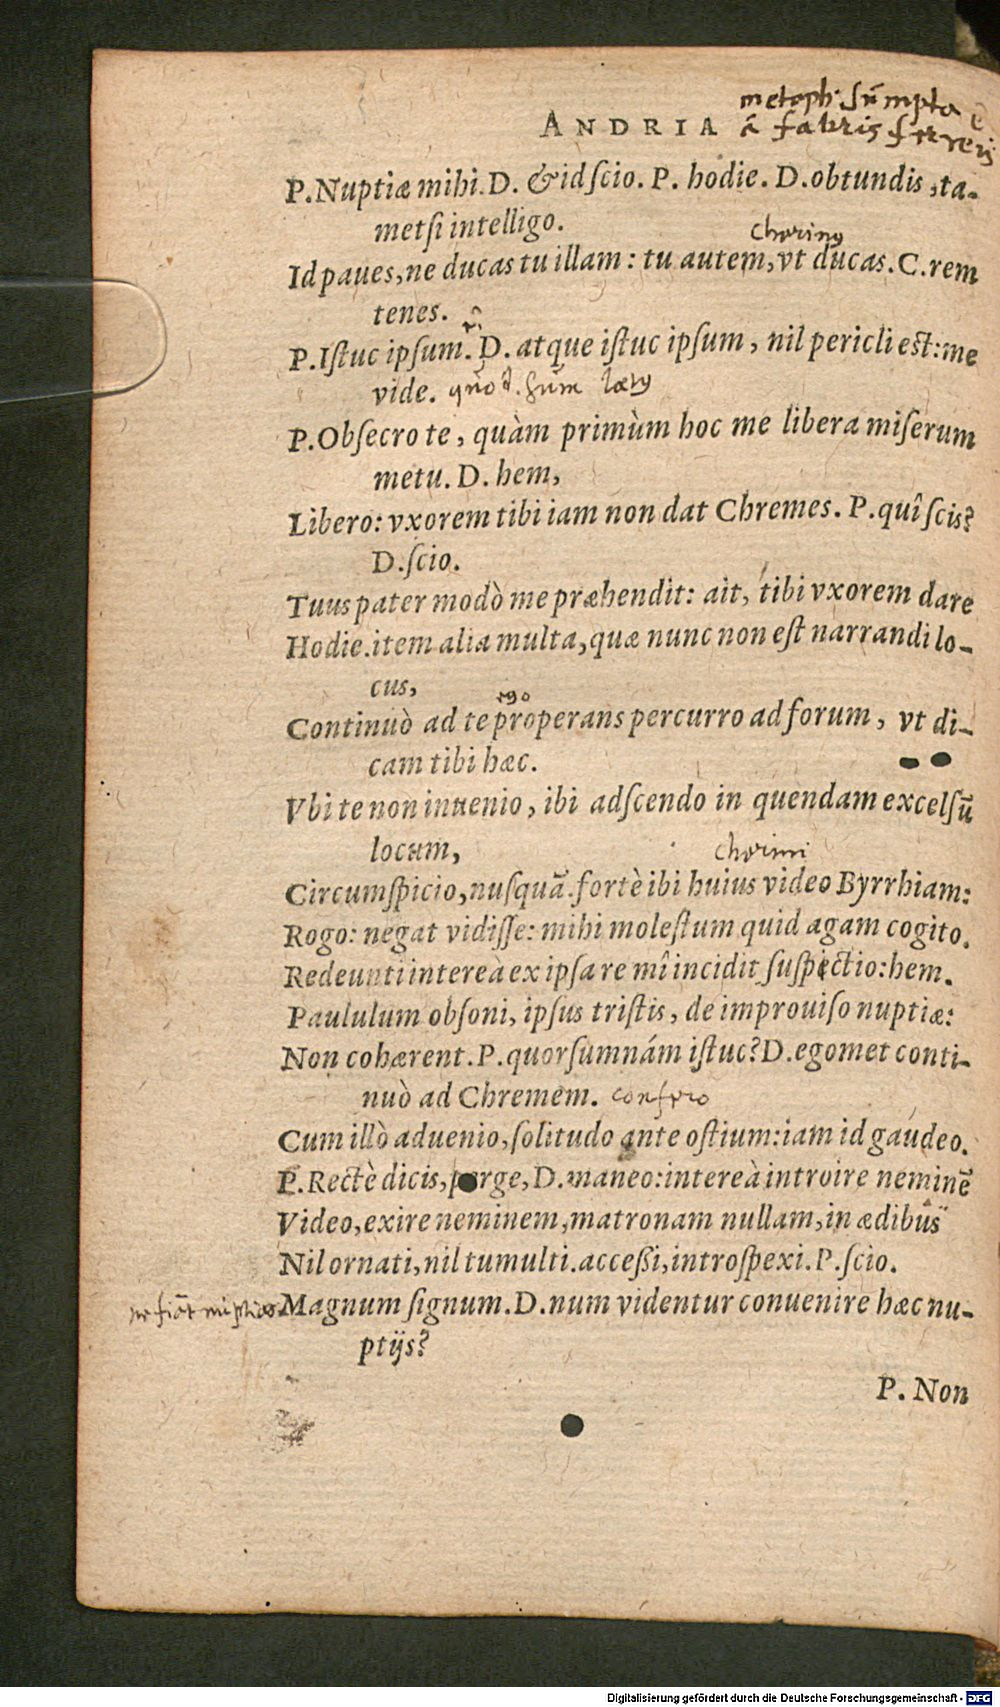 metaph. sūmpta
ANDRIA
ā fabris ferreis
P. Nuptiæ mihi. D. & id scio. P. hodie. D. obtundis, ta-
metsi intelligo.
Charinus
Id paues, ne ducas tu illam: tu autem, vt ducas. C. rem
tenes.
P. Istuc ipsum. D. atque istuc ipsum, nil pericli est: me
vide.
P. Obsecro te, quàm primùm hoc me libera miserum
metu. D. hem,
Libero: vxorem tibi iam non dat Chremes. P. quî scis?
D. scio.
Tuus pater modò me præhendit: ait, tibi vxorem dare
Hodie. item alia multa, quæ nunc non est narrandi lo-
cus,
ego
Continuò ad te properans percurro ad forum, vt di-
cam tibi hæc.
Vbi te non inuenio, ibi adscendo in quendam excelsū
locum,
Charini
Circumspicio, nusquā. fortè ibi huius video Byrrhiam:
Rogo: negat vidisse: mihi molestum quid agam cogito.
Redeunti intereà ex ipsa re mî incidit suspectio: hem.
Paululum obsoni, ipsus tristis, de improuiso nuptiæ:
Non cohærent. P. quorsumnám istuc? D. egomet conti-
nuò ad Chremem. confero
Cum illò aduenio, solitudo ante ostium: iam id gaudeo.
P. Rectè dicis, perge, D. maneo: intereà introire neminē
Video, exire neminem, matronam nullam, in ædibus
Nil ornati, nil tumulti. accessi, introspexi. P. scio.
ne fiāt nuptiæ Magnum signum. D. num videntur conuenire hæc nu-
ptijs?
P. Non
Digitalisierung gefördert durch die Deutsche Forschungsgemeinschaft - DFG